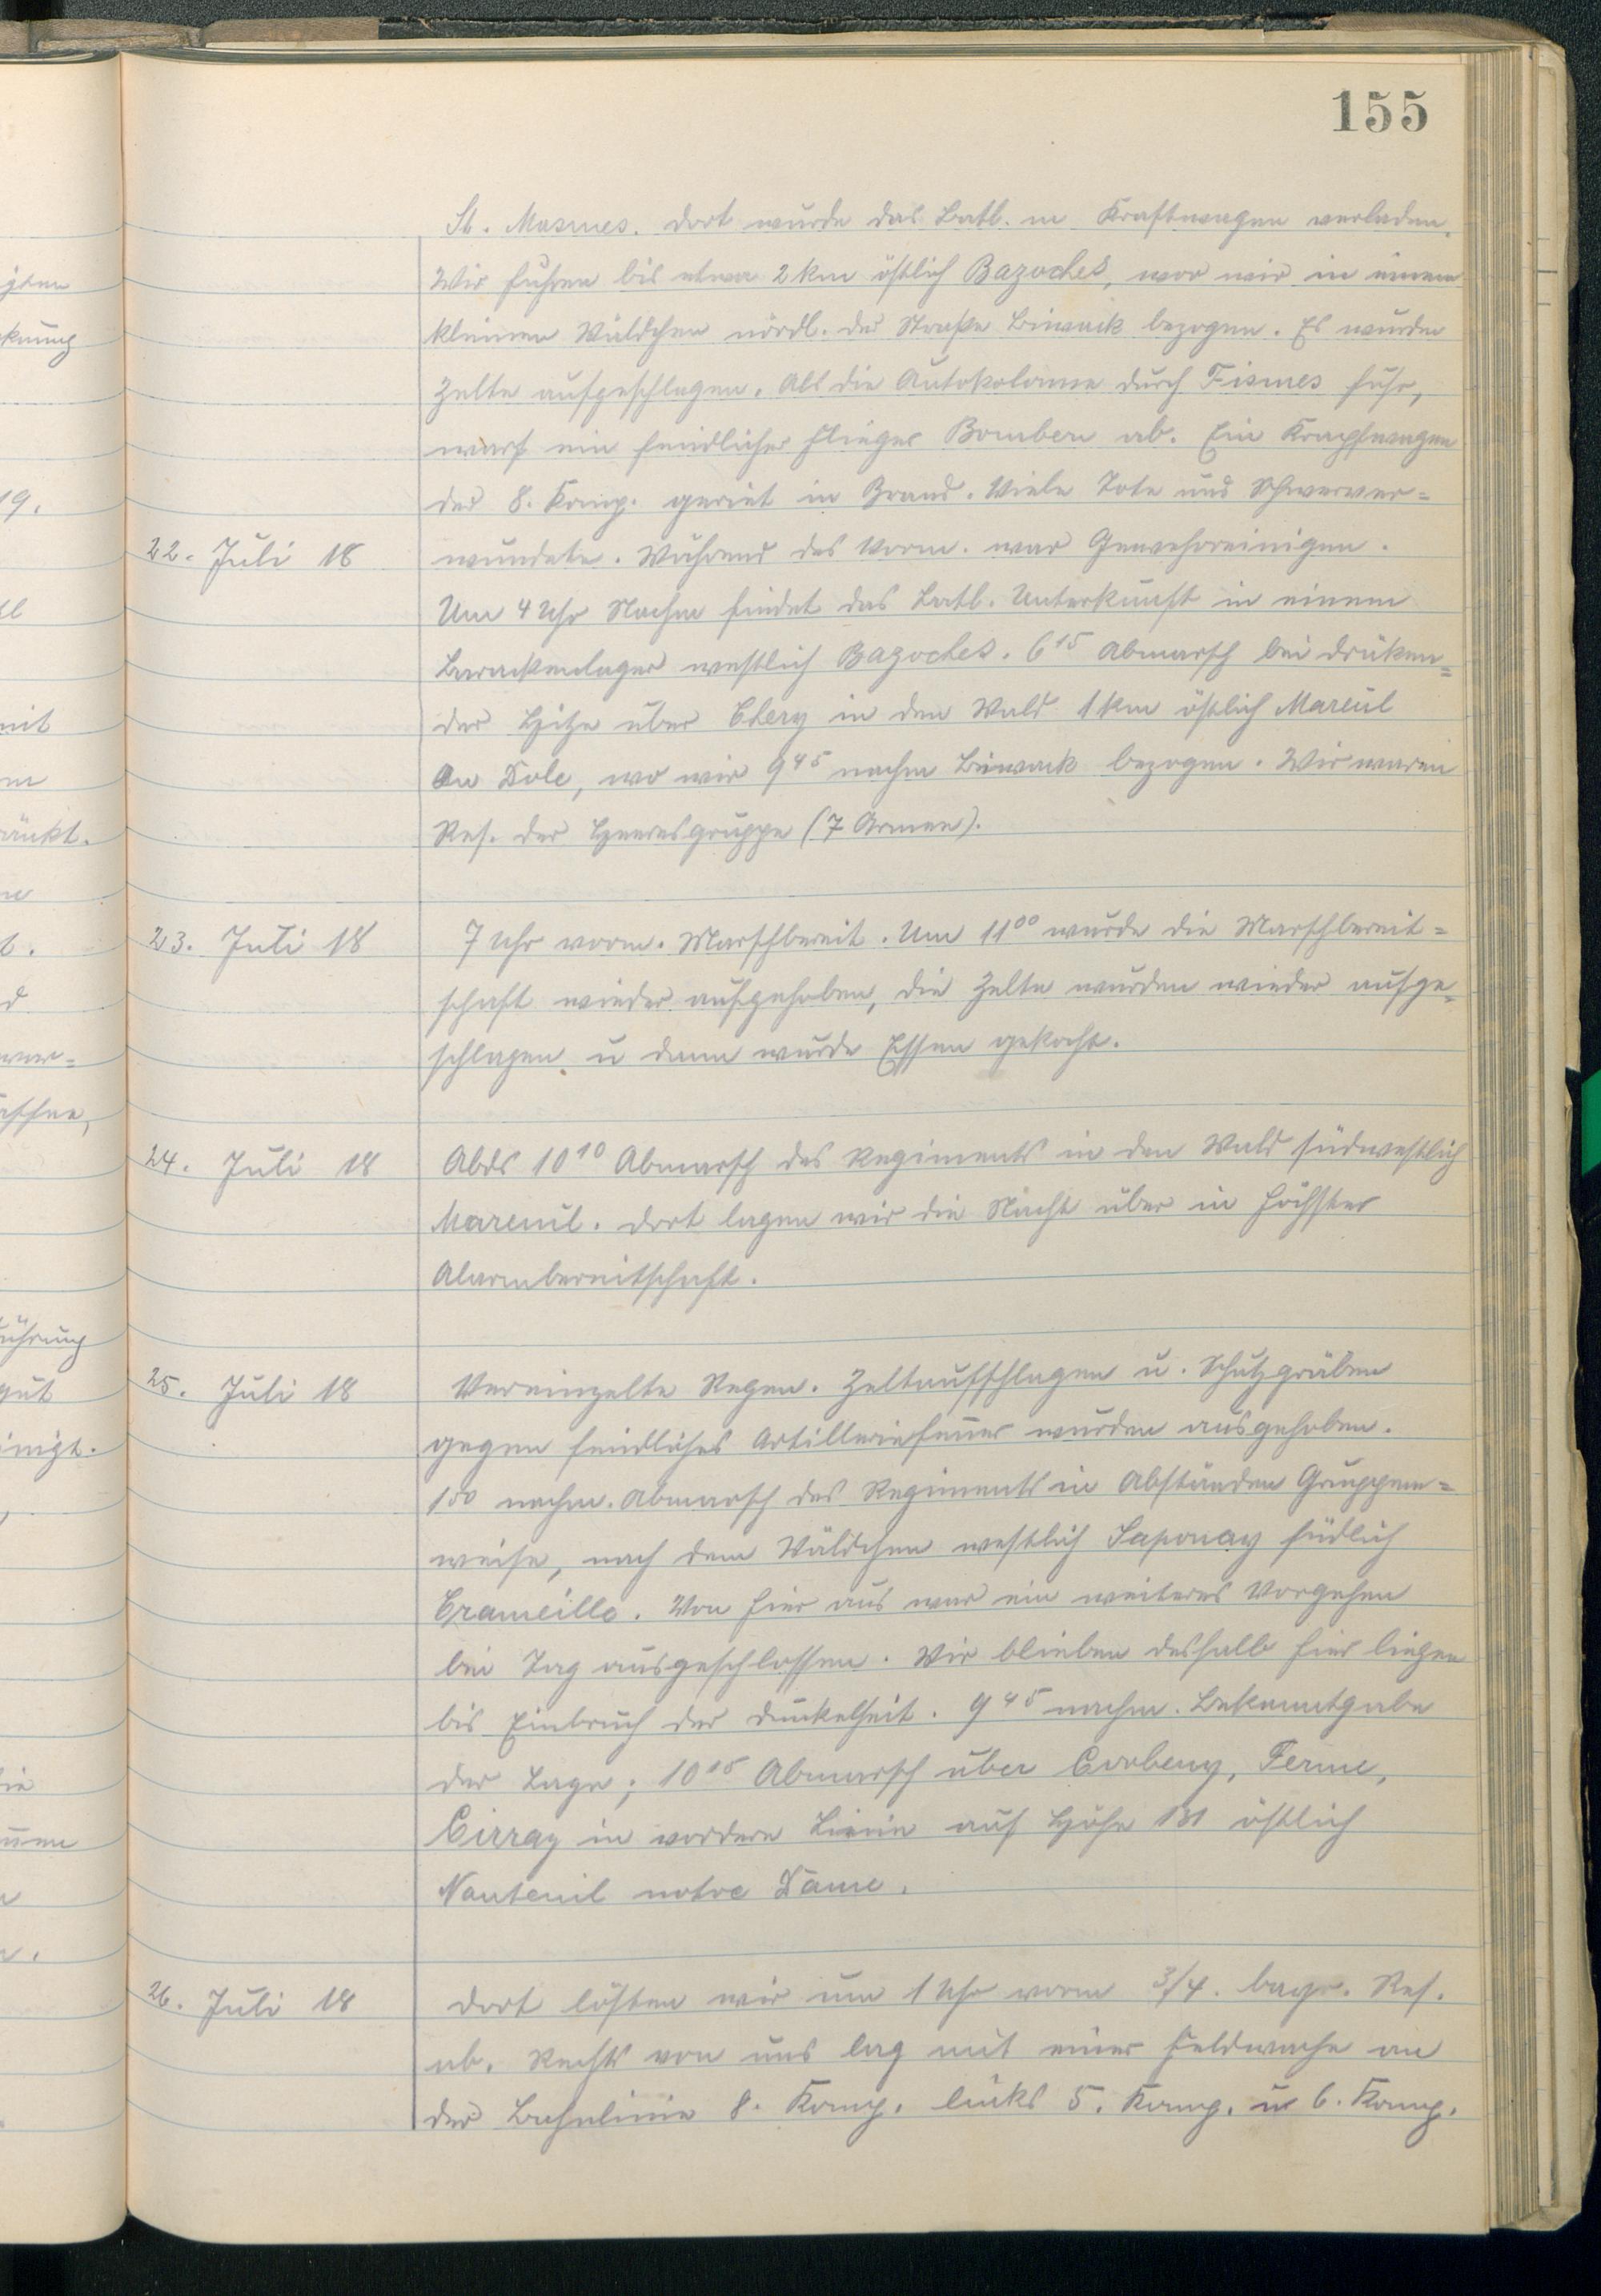 155
St. Masmes. Dort wurde das Batl. in Kraftwagen verladen.
Wir fuhren bis etwa 2 km östlich Bazoches, wor wir in einem
kleinen Wäldchen nördl. der Straße Biwack bezogen. Es wurden
Zelte aufgeschlagen. Als die Autokolonne durch Fismes fuhr,
warf ein feindlicher Flieger Bomben ab. Ein Krapfwagen
der 8. Komp. geriet in Brand. Viele Tote und Schwerver=
22. Juli 18 wundete. Während des Vorm. war Gewehrreinigen.
Um 4 Uhr Nachm findet das Batl. Unterkunft in einem
Barackenlager westlich Bazoches. 6 15 Abmarsch bei drüken=
der Hitze über Chery in den Wald 1 km östlich Mareuil
en Dole, wo wir 9 45 nachm Biwack bezogen. Wir waren
Res. der Heeresgruppe (7 Armee).
23. Juli 18 7 Uhr vorm. Marschbereit. Um 11 00 wurde die Marschbereit=
schaft wieder aufgehoben, die Zelte wurden wieder aufge=
schlagen u dann wurde Essen gekocht.
24. Juli 18 Abds 10 10 Abmarsch des Regiments in den Wald südwestlich
Mareuil. Dort lagen wir die Nacht über in höchster
Alarmbereitschaft.
25. Juli 18 Vereinzelte Regen. Zeltaufschlagen u. Schutzgräben
gegen feindliches Artilleriefeuer wurden ausgehoben.
1 00 nachm. Abmarsch des Regiments in Abständen Gruppen=
weise, nach dem Wäldchen westlich Saponay südlich
Crameille. Von hier aus war ein weiteres Vorgehen
bei Tag ausgeschlossen. Wir blieben deshalb hier liegen
bis Einbruch der Dunkelheit. 9 45 nachm. Bekanntgabe
der Lage; 10 15 Abmarsch über Corbeny, Ferme,
Cirray in vordere Linie auf Höhe 131 östlich
Nanteuil notre Dame.
26. Juli 18 Dort lösten wir um 1 Uhr vorm 3/4. bayr. Res.
ab. Rechts von uns lag mit einer Feldwache an
der Bahnlinie 8. Komp. links 5. Komp. u 6. Komp.